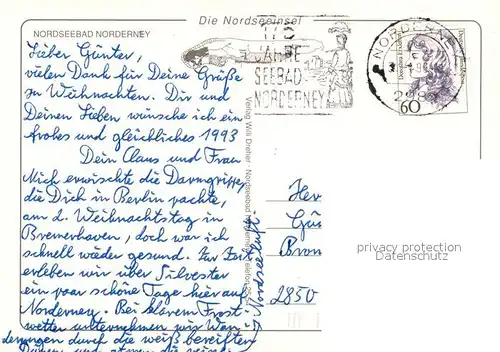 Die Nordseeinsel
NORDSEEBAD NORDERNEY
175
JAHRE
SEEBAD
NORDERNEY
NORDERN
60
Lieber Günter,
vielen Dank für Deine Grüße
zu Weihnachten. Dir und
Deinen Lieben wünsche ich ein
frohes und glückliches 1993
Dein Claus und Frau
Mich erwischte die Darmgrippe,
die Dich in Berlin packte,
am 2. Weihnachtstag in
Bremerhaven, doch war ich
schnell wieder gesund. Zur Zeit
erleben wir über Silvester
ein paar schöne Tage hier auf
Norderney. Bei klarem Frost
wetter unternehmen wir Wan
derungen durch die weiß bereiften
Dünen und atmen die reine
Nordseeluft.
Verlag Willi Dreher · Nordseebad Norderney
Her
Gü
Brem
2850
privacy protection
Datenschutz